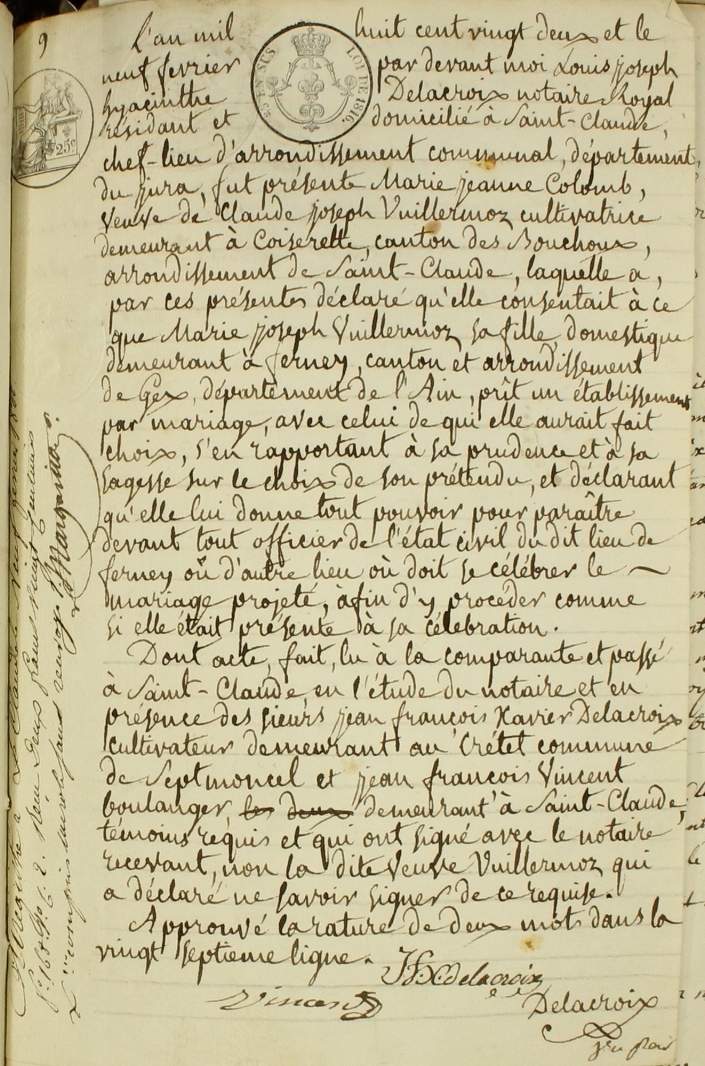 9
L'an mil huit cent vingt deux et le
neuf fevrier par devant moi Louis joseph
hyacinthe Delacroix notaire Royal
résidant et domicilié à Saint-Claude,
chef-lieu d'arrondissement communal, département
du jura, fut présente Marie jeanne Colomb,
veuve de Claude joseph Vuillermoz cultivatrice
demeurant à Coiserette, canton des Bouchoux,
arrondissement de Saint-Claude, laquelle a,
par ces présentes déclaré qu'elle consentait à ce
que Marie joseph Vuillermoz sa fille, domestique
demeurant à ferney, canton et arrondissement
de Gex, département de l'Ain, prît un établissement
par mariage, avec celui de qui elle aurait fait
choix, s'en rapportant à sa prudence et à sa
sagesse sur le choix de son prétendu, et déclarant
qu'elle lui donne tout pouvoir pour paraître
devant tout officier de l'état civil du dit lieu de
ferney où d'autre lieu où doit se célébrer le ~
mariage projeté, afin d'y procéder comme
si elle était présente à sa célébration.
Dont acte, fait, lu à la comparante et passé
à Saint-Claude, en l'étude du notaire et en
présence des sieurs jean françois Xavier Delacroix
cultivateur demeurant au Crétet commune
de Septmoncel et jean françois Vincent
boulanger, les deux demeurant à Saint-Claude,
témoins requis et qui ont signé avec le notaire
recevant, non la dite veuve Vuillermoz qui
a déclaré ne savoir signer de ce requise.
Approuvé la rature de deux mots dans la
vingt septieme ligne.
JFX delacroix
Vincent
Delacroix
LOI DE 1816
25c